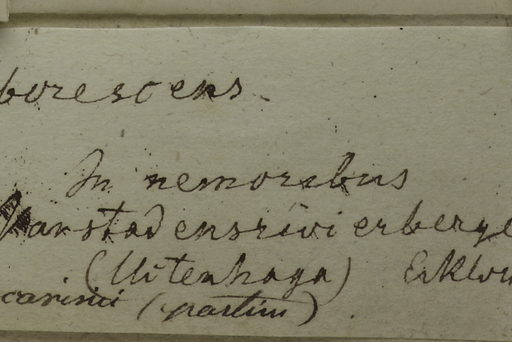 borescens
In nemoribus
Vanstadensrivierberge
(Uitenhaga) Ecklon
carinii (partim)